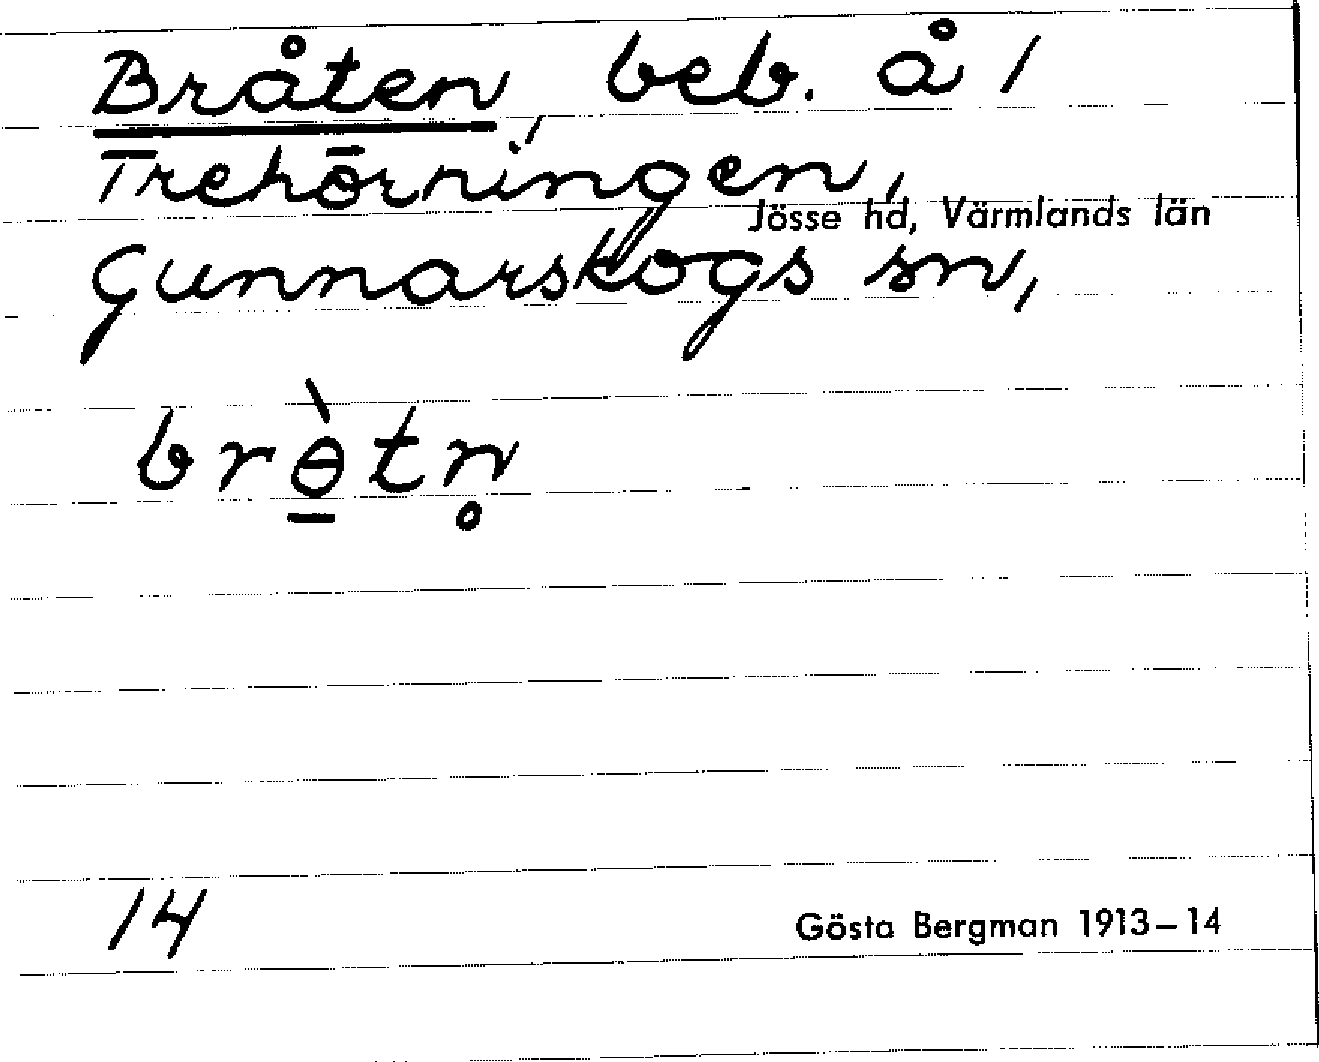 Bråten, beb. å 1
Trehörningen,
Jösse hd, Värmlands län
Gunnarskogs sn,
brɵ̲̀tn̥
14
Gösta Bergman 1913–14